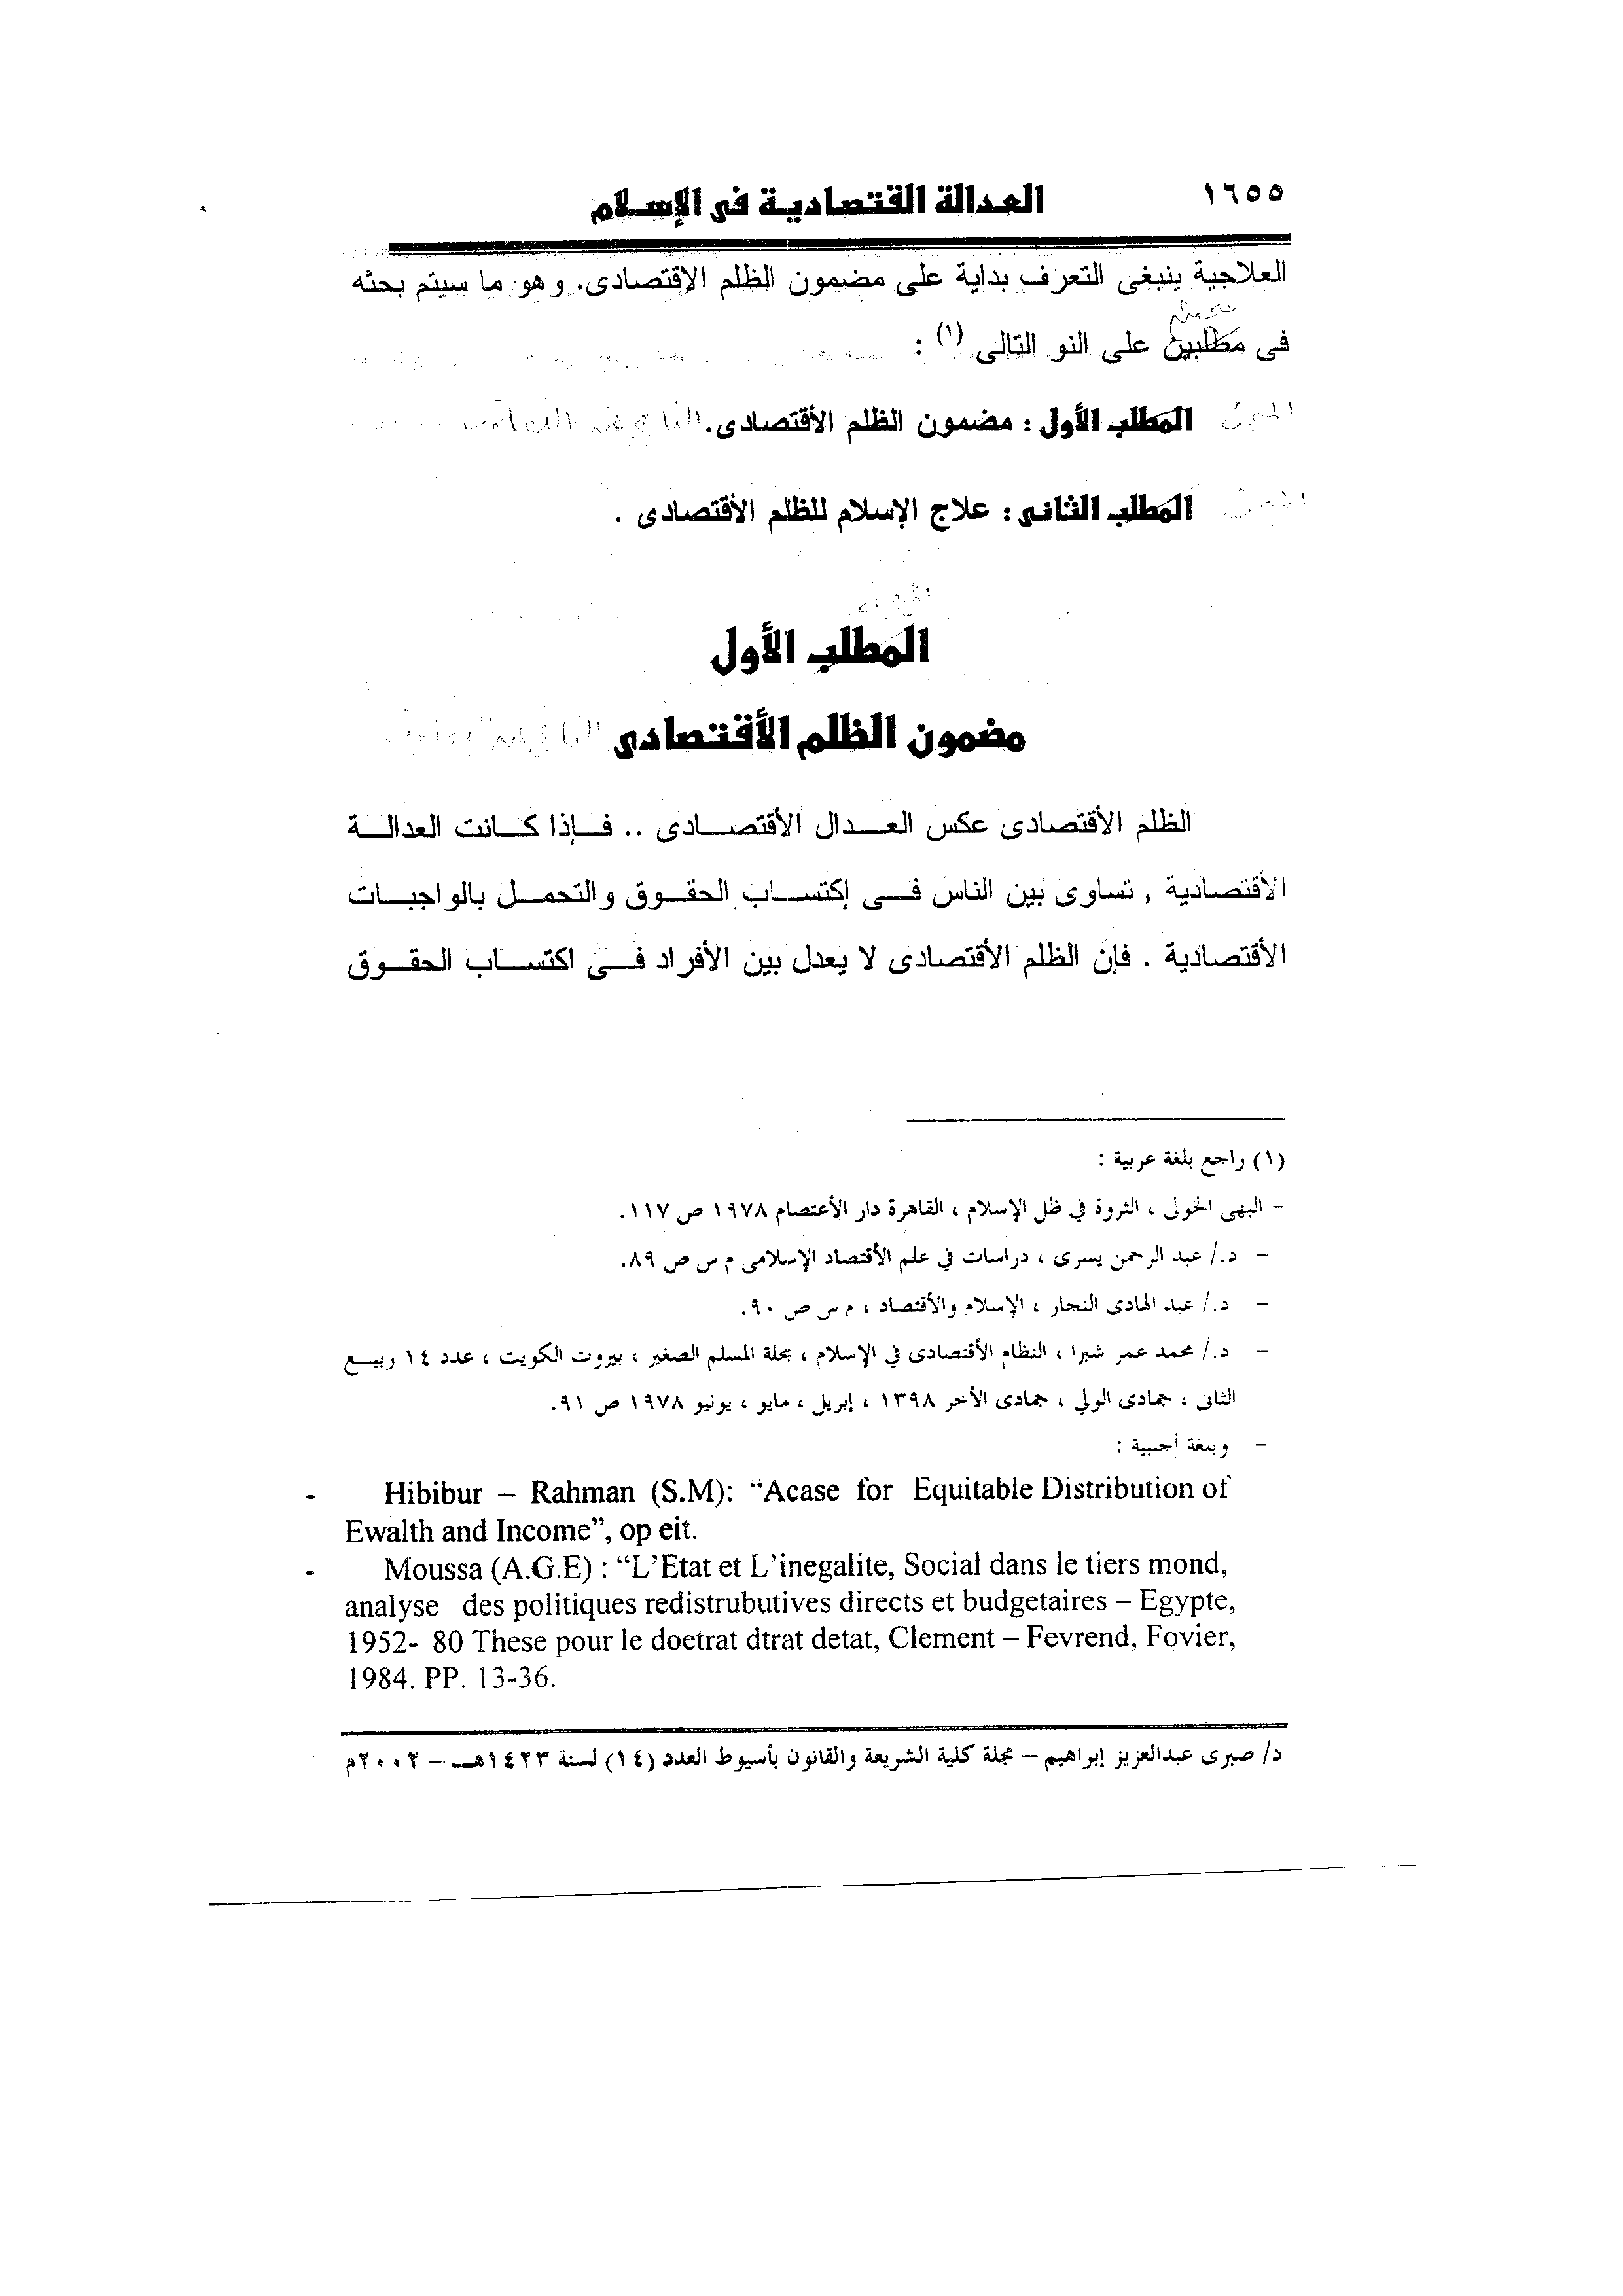 ١٦٥٥
العدالة القتصادية فى الإسلام
العلاجية ينبغى التعرف بداية على مضمون الظلم الاقتصادى. وهو ما سيتم بحثه
فى مطلبين على النو التالى (١) :
المطلب الأول : مضمون الظلم الأقتصادى.
المطلب الثانى : علاج الإسلام للظلم الأقتصادى .
المطلب الأول
مضمون الظلم الأقتصادى
الظلم الأقتصادى عكس العدال الأقتصادى .. فإذا كانت العدالة
الأقتصادية , تساوى بين الناس فى إكتساب الحقوق والتحمل بالواجبات
الأقتصادية . فإن الظلم الأقتصادى لا يعدل بين الأفراد فى اكتساب الحقوق
(١) راجع بلغة عربية :
- البهى الخولى ، الثروة في ظل الإسلام ، القاهرة دار الأعتصام ١٩٧٨ ص ١١٧.
- د./ عبد الرحمن يسرى ، دراسات في علم الأقتصاد الإسلامى م س ص ٨٩.
- د./ عبد الهادى النجار ، الإسلام والأقتصاد ، م س ص ٩٠.
- د./ محمد عمر شبرا ، النظام الأقتصادى في الإسلام ، مجلة المسلم الصغير ، بيروت الكويت ، عدد ١٤ ربيع
الثانى ، جمادى الولي ، جمادى الأخر ١٣٩٨ ، إبريل ، مايو ، يونيو ١٩٧٨ ص ٩١.
- وبلغة أجنبية :
- Hibibur – Rahman (S.M): “Acase for Equitable Distribution of
Ewalth and Income”, op eit.
- Moussa (A.G.E) : “L’Etat et L’inegalite, Social dans le tiers mond,
analyse des politiques redistrubutives directs et budgetaires – Egypte,
1952- 80 These pour le doetrat dtrat detat, Clement – Fevrend, Fovier,
1984. PP. 13-36.
د/ صبرى عبدالعزيز إبراهيم – مجلة كلية الشريعة والقانون بأسيوط العدد (١٤) لسنة ١٤٢٣هـ – ٢٠٠٢م